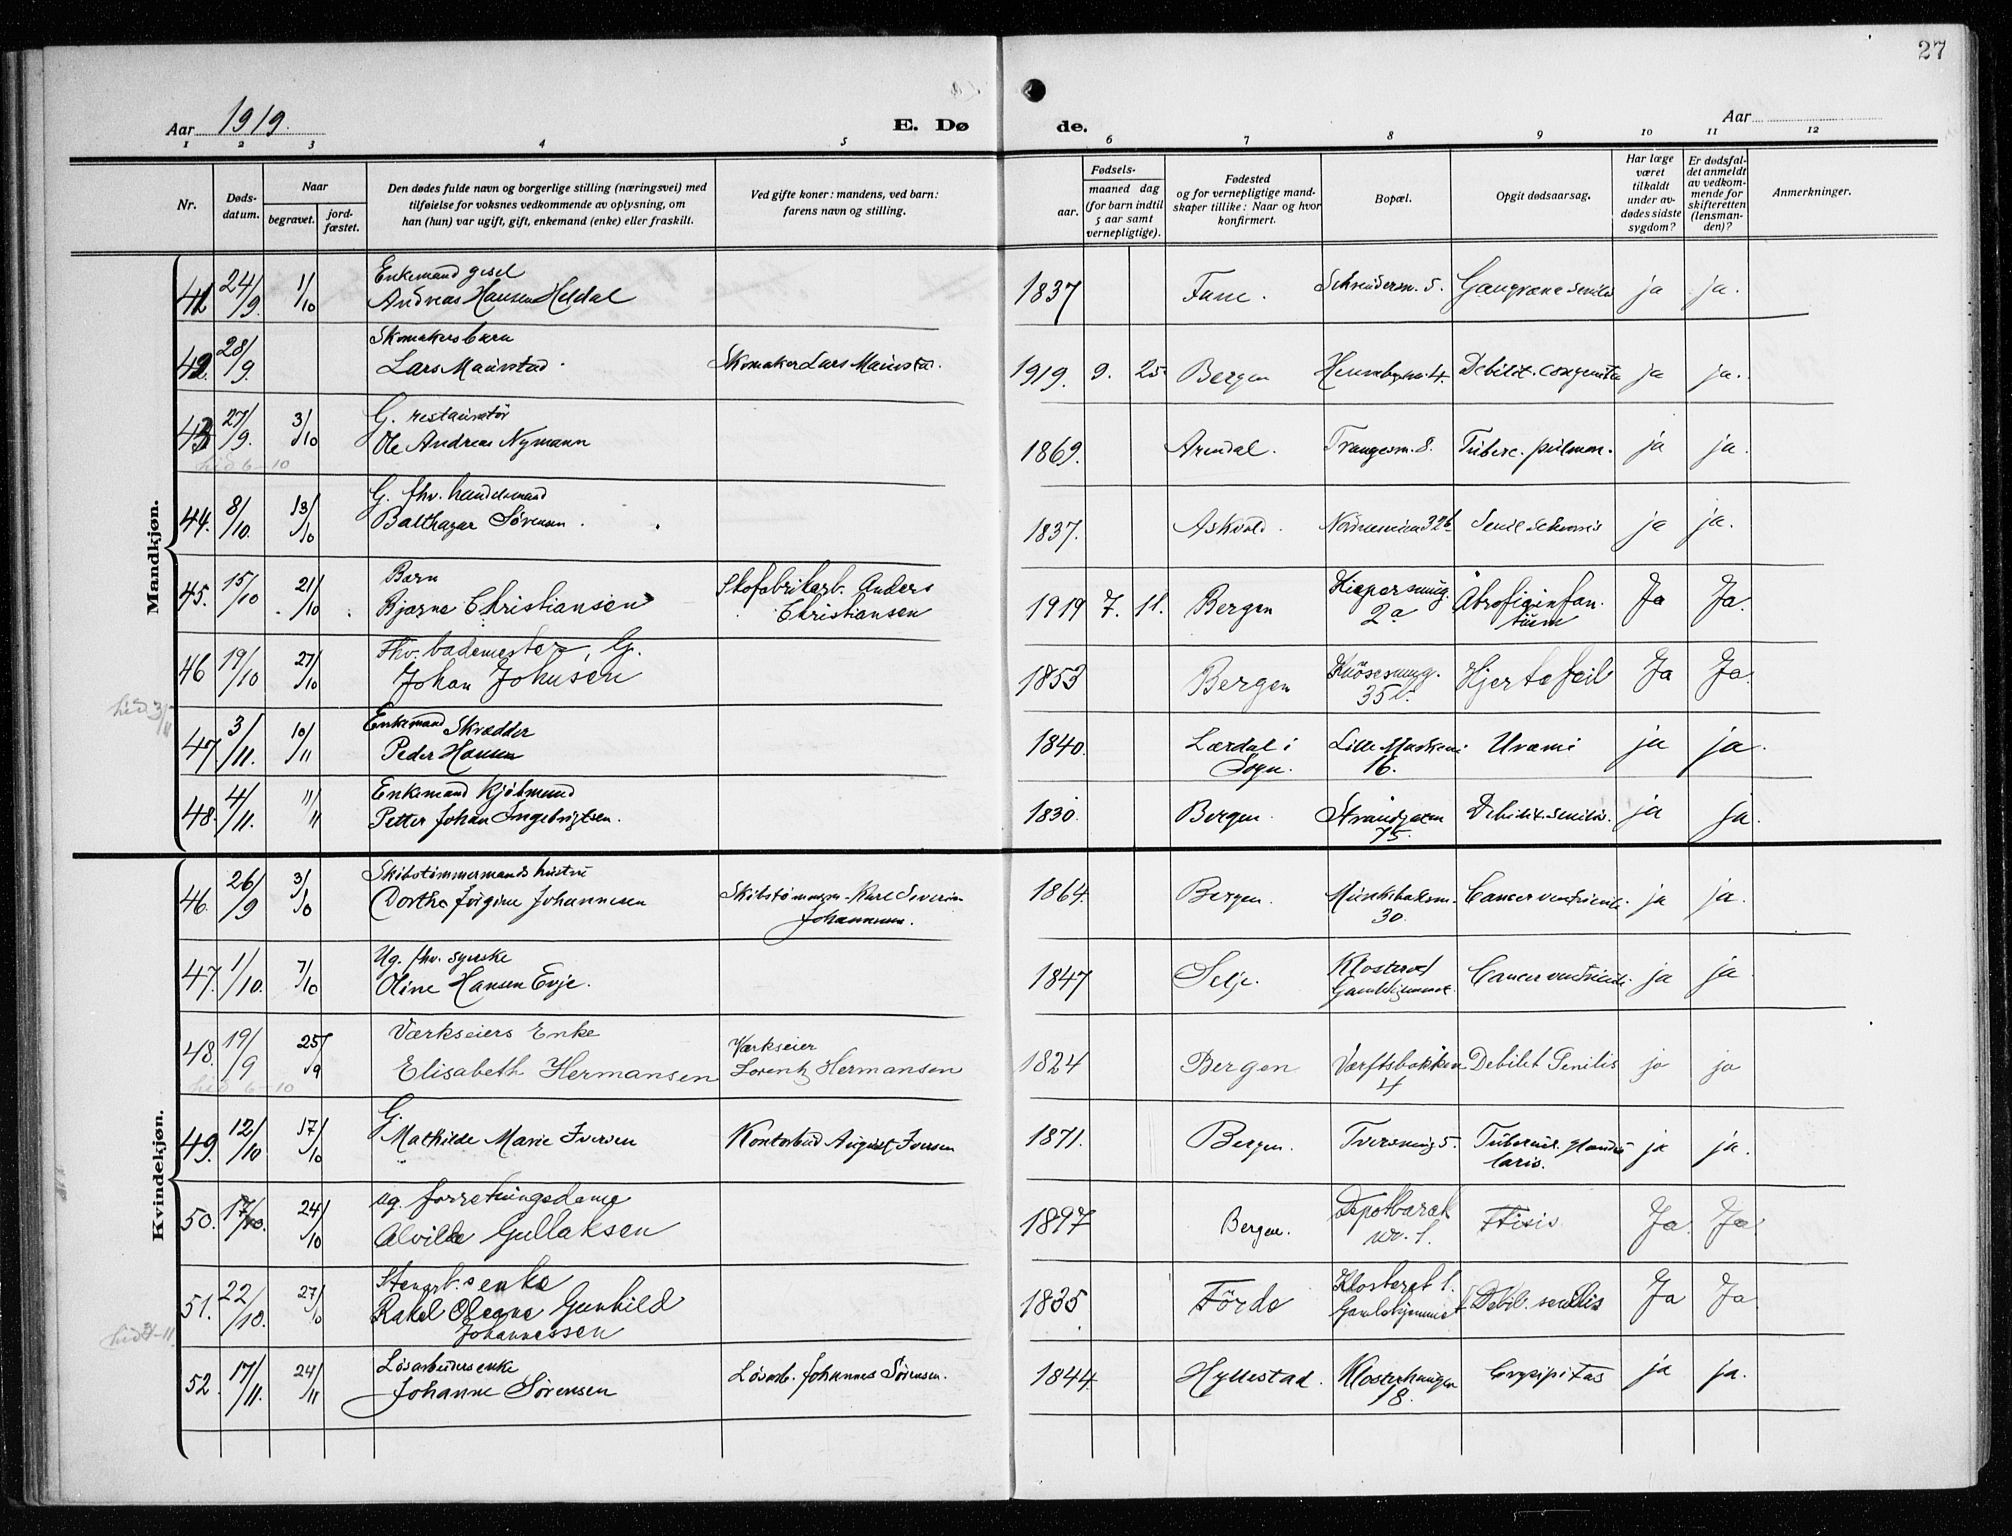 27
Aar 1919.
E. Dø
de.
Aar
1 2 3 4 5 6 7 8 9 10 11 12
Nr.
Døds-
datum.
Naar
begravet.
jord-
fæstet.
Den dødes fulde navn og borgerlige stilling (næringsvei) med
tilføielse for voksnes vedkommende av oplysning, om
han (hun) var ugift, gift, enkemand (enke) eller fraskilt.
Ved gifte koner: mandens, ved barn:
farens navn og stilling.
Fødsels-
aar.
maaned dag
(for barn indtil
5 aar samt
vernepligtige).
Fødested
og for vernepligtige mand-
skaper tillike: Naar og hvor
konfirmert.
Bopæl.
Opgit dødsaarsag.
Har læge
været
tilkaldt
under av-
dødes sidste
sygdom?
Er dødsfal-
det anmeldt
av vedkom-
mende for
skifteretten
(lensman-
den)?
Anmerkninger.
Mandkjøn.
Enkemand
41 24/9 1/10 Andreas Hansen Heldal 1837 Fane. 5. Gangræna senilis ja ja.
Skomakersbarn
42. 28/9. Lars Maurstad. Skomaker Lars Maurstad. 1919. 9. 25 Bergen 4. Debilit. congenita ja ja.
G. restauratør
43 27/9. 3/10 Ole Andreas Nymann 1869. Arendal. Trangesm. 8. Tuberc. pulmon. ja ja.
hid 6-10
G. fhv. handelsmand
44. 8/10. 13/10 Balthazar Sørensen. 1837. Askvold. Nordnesveien 32b ja ja.
Barn
45. 15/10 21/10 Bjarne Christiansen Skofabrikarb. Anders
Christiansen
1919 7. 11. Bergen
2a
Atrofi infan-
tum
Ja Ja.
Fhv. bademester, G.
46 19/10 27/10 Johan Johnsen 1853 Bergen Knösesmug.
35b.
Hjertefeil Ja Ja.
hid 3/11
Enkemand Skrædder
47 3/11. 10/11 Peder Hansen 1840. Lærdal i
Sogn.
Lille
16.
Uræmi ja ja.
Enkemand Kjøbmand
48. 4/11. 11/11 Petter Johan Ingebrigtsen. 1830. Bergen. Strandgaten
75.
Debilit. senilis. ja ja.
Kvindekjøn.
Skibstømmermands hustru
46. 26/9 3/10 Dorthe Jørgine Johannesen Skibstømmerm. Karl Severin
Johannesen.
1864. Bergen.
30.
Cancer ventriculi. ja ja.
Ug. fhv. syerske
47. 1/10. 7/10 Oline Hansen Evje. 1847 Selje. Klosteret
Gamlehjemmet.
Cancer ventriculi ja ja
Værkseiers Enke
48. 19/9 25/9 Elisabeth Hermansen Værkseier
Lorentz Hermansen
1824 Bergen Værftsbakken
4
Debilet Senilis ja ja
hid 6-10
G.
49. 12/10 17/10 Mathilde Marie Iversen Kontorbud August Iversen 1871. Bergen. Tversmug 5. Tubercul. glandu
laris.
ja ja.
ug. forretningsdame
50. 17/10. 24/10 Alvilde Gullaksen 1897 Bergen. Depotbarak
nr. 1.
Ftisis Ja. Ja.
Stenarb.s enke
51. 22/10. 27/10 Rakel Oleane Gunhild
Johannessen
1835 Förde Klosteret 1.
Gamlehjemmet
Debil. senilis Ja Ja.
hid 3-11
Løsarbeiders enke
52 17/11. 24/11 Johanne Sørensen Løsarb. Johannes Sørensen. 1844. Hyllestad. Klosterhaugen
18.
ja ja.